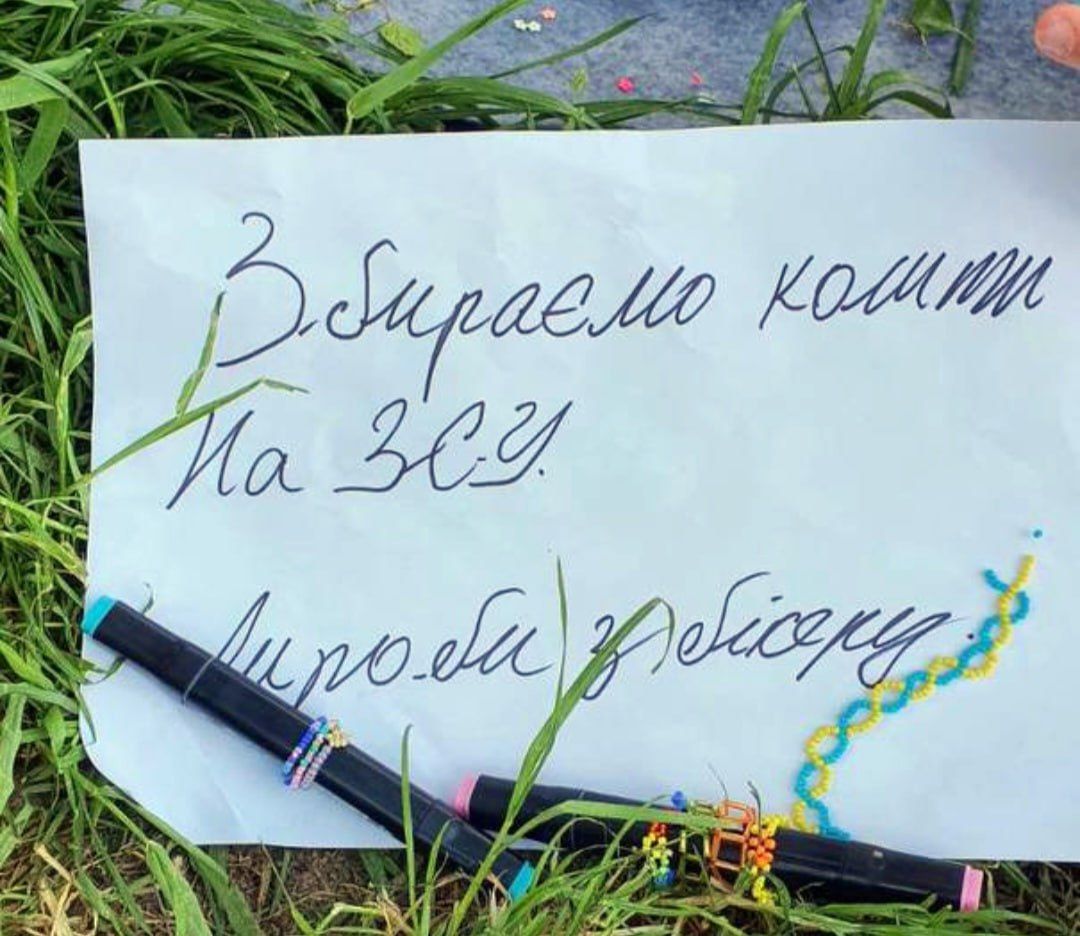 Збираємо кошти
На ЗСУ.
Вироби з бісеру.